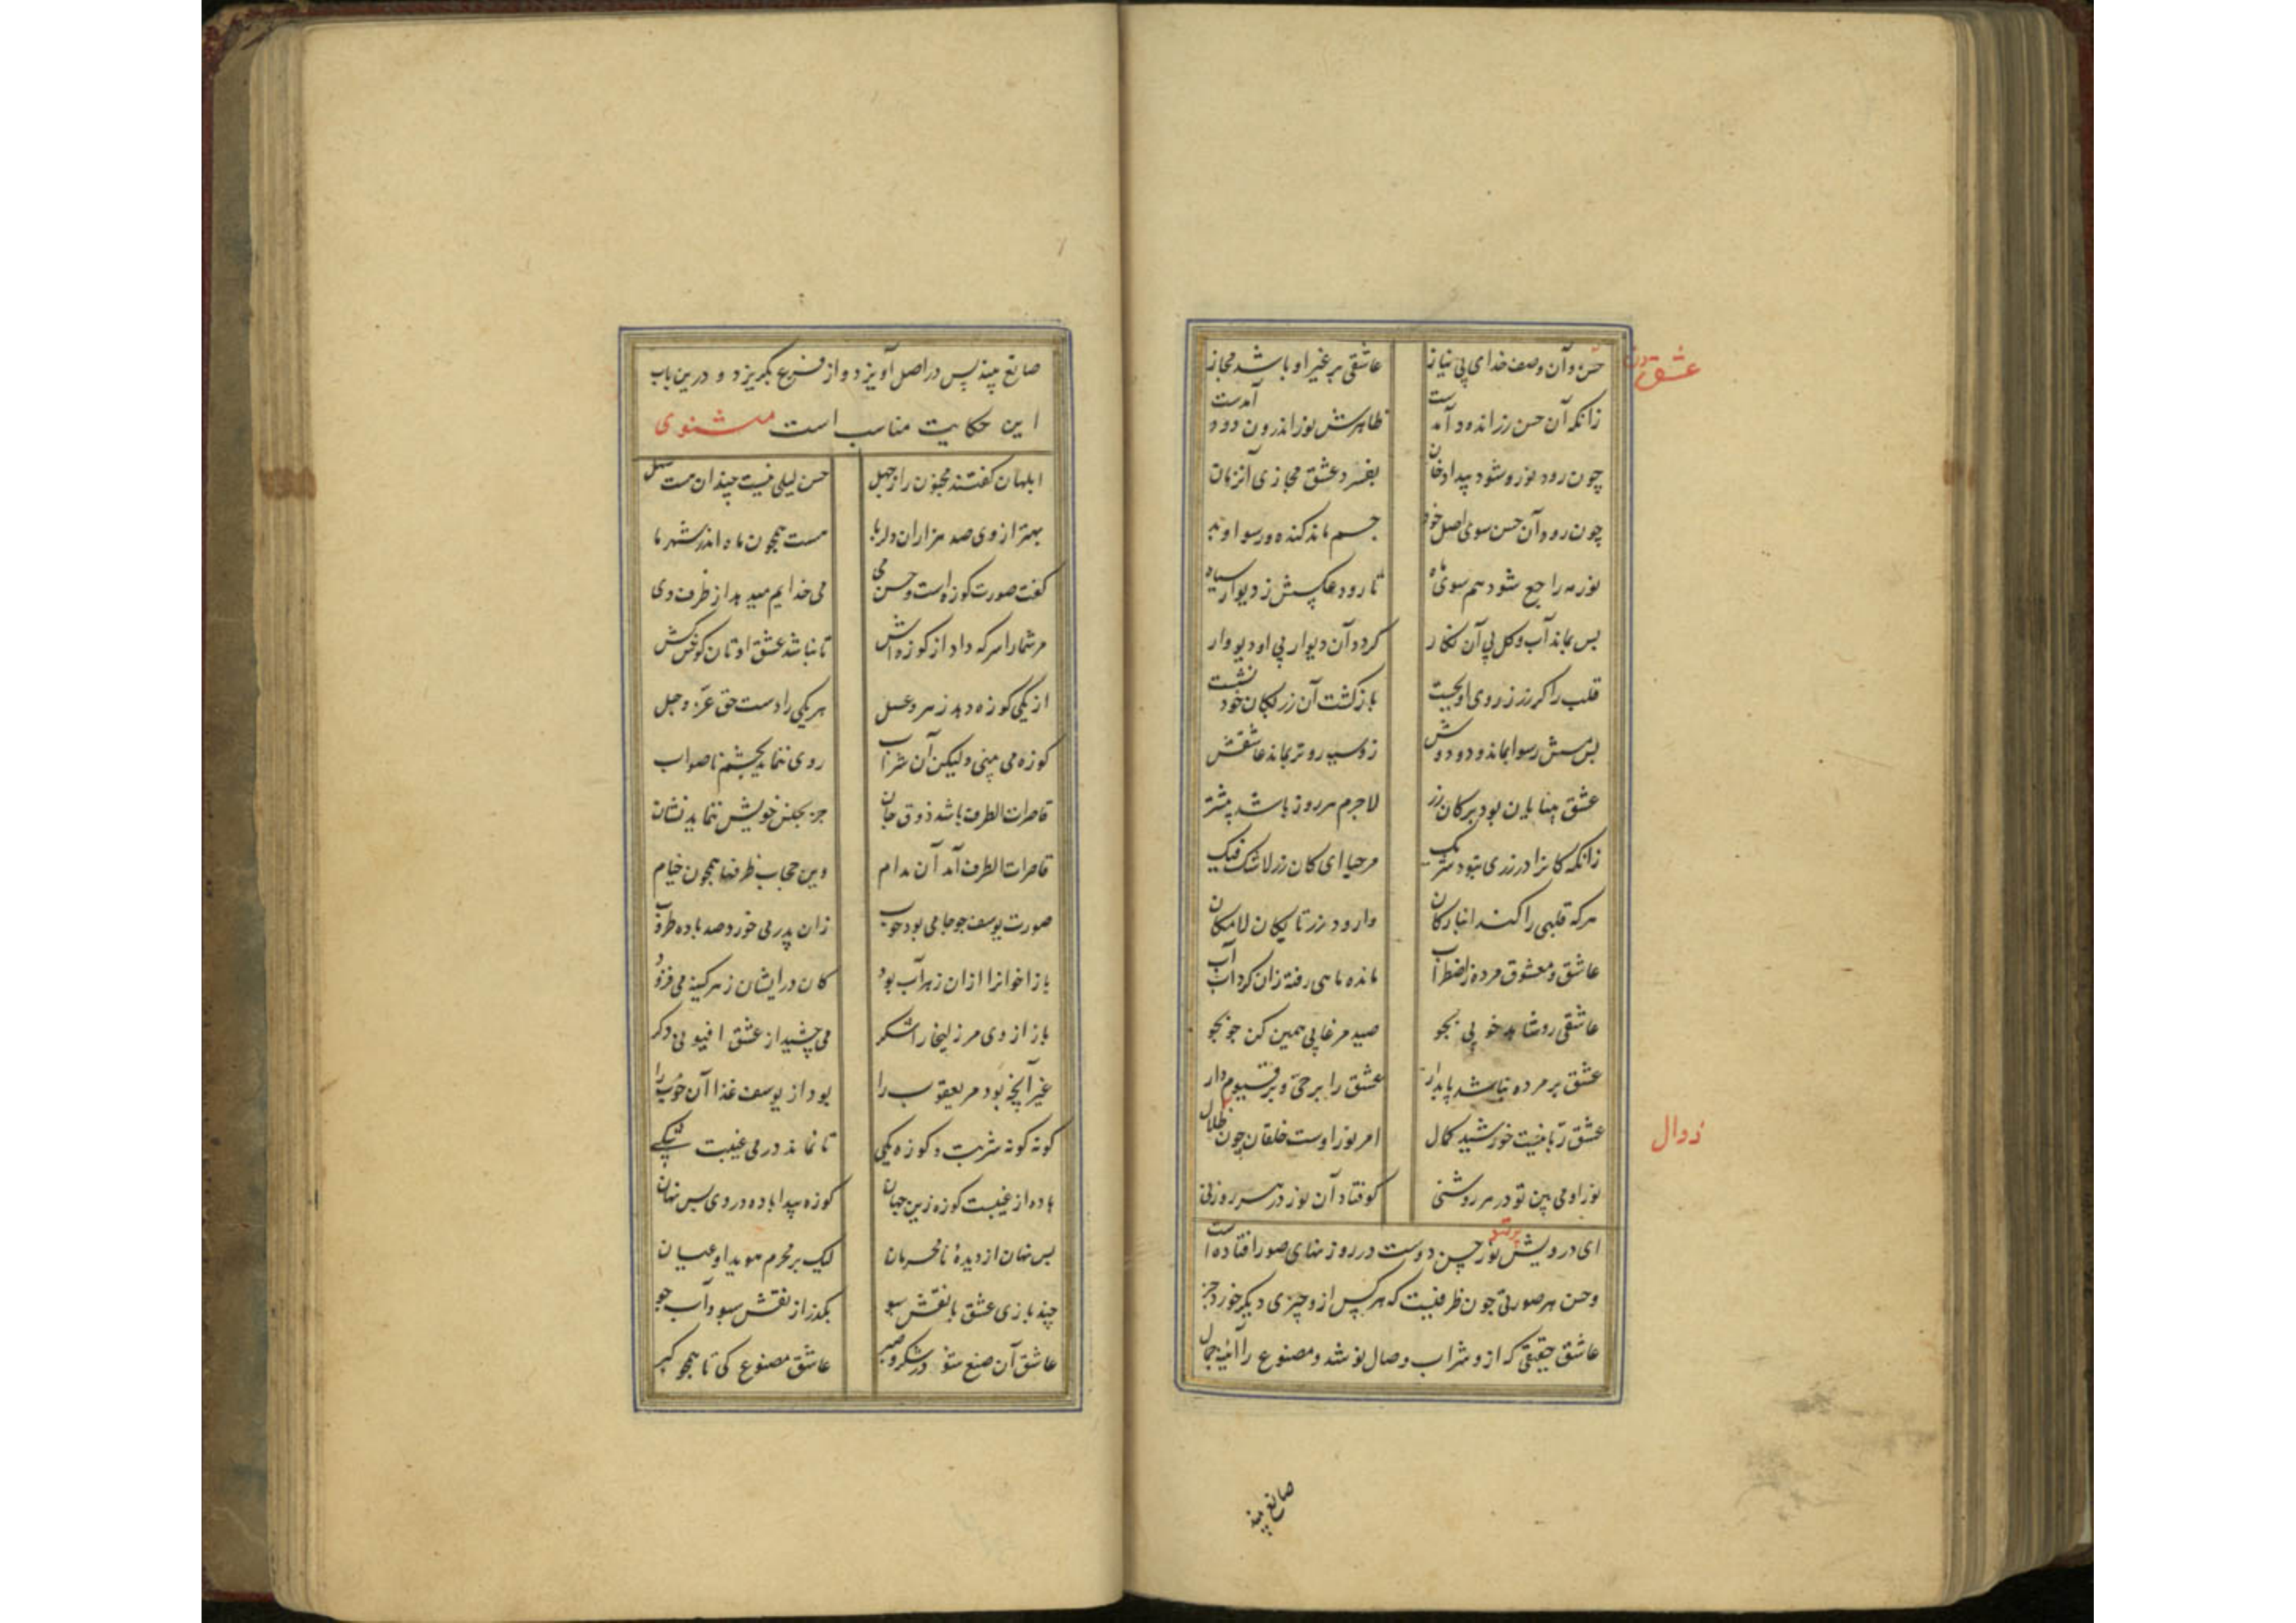 حسن و آن وصف خدای بی نیاز عاشقی بر غیر او باشد مجاز
عشق
زانکه آن حسن زر اندود آمدست ظاهرش نور اندرون دود آمدست
چون رود نور و شود پیدا دخان بفسرد عشق مجازی آن زمان
چون رود آن حسن سوی اصل خود جسم ماند گنده و رسوا و بد
نور مه راجع شود هم سوی ماه تا رود عکسش ز دیوار سیاه
بس بماند آب و کل بی آن نکار کردد آن دیوار بی او دیووار
قلب را کز زر ز روی او بجست بازکشت آن زر بکان خود نشست
بس مس رسوا بماند دود وش زو سیه روتر بماند عاشقش
عشق بینایان بود بر کان زر لاجرم هر روز باشد بیشتر
زانکه کانرا در زری نبود شریک مرحبا ای کان زر لا شک فیک
هر که قلبی را کند انباز کان وارود زر تا بکان لامکان
عاشق و معشوق مرده ز اضطراب مانده ماهی رفته زان کرداب آب
عاشقی رو شاهد خوبی بجو صید مرغابی همین کن جو بجو
عشق بر مرده نباشد پایدار عشق را بر حی و بر قیوم دار
عشق ربانیست خورشید کمال امر نور اوست خلقان چون ظلال
زوال
نور او می بین تو در هر روشنی کوفتاد آن نور در هر روزنی
ای درویش پرتو نور حسن دوست در روزنهای صور افتاده است
و حسن هر صورتی چون ظرفیست که هر کس ازو چیزی دیگر خورد جز
عاشق حقیقی که ازو شراب وصال نوشد و مصنوع را آئینه جمال
صانع بیند
صانع بیند پس در اصل آویزد و از فرع بگریزد و درین باب
این حکایت مناسب است مثنوی
ابلهان گفتند مجنون را ز جهل حسن لیلی نیست چندان هست سهل
بهتر از وی صد هزاران دلربا هست همچون ماه اندر شهر ما
گفت صورت کوزه است و حسن می می خدایم میدهد از ظرف وی
مر شما را سرکه داد از کوزه اش تا نباشد عشق اوتان کوش کش
از یکی کوزه دهد زهر و عسل هر یکی را دست حق عز و جل
کوزه می بینی ولیکن آن شراب روی ننماید بچشم ناصواب
قاصرات الطرف باشد ذوق جان جز بجنس خویش ننماید نشان
قاصرات الطرف آمد آن مدام وین حجاب ظرفها همچون خیام
صورت یوسف چو جامی بود خوب زان پدر می خورد صد باده طروب
باز اخوانرا ازان زهراب بود کان در ایشان زهر کینه می فزود
باز از وی مر زلیخا را شکر می چشید از عشق افیونی دکر
غیر آنچه بود مر یعقوب را بود از یوسف غذا آن خوب را
کونه کونه شربت و کوزه یکی تا نماند در می غیبت شکی
باده از غیبست کوزه زین جهان کوزه پیدا باده در وی بس نهان
بس نهان از دیدهٔ نامحرمان لیک بر محرم هویدا و عیان
چند بازی عشق با نقش سبو بگذر از نقش سبو و آب جو
عاشق آن صنع شو در شکر و صبر عاشق مصنوع کی تا همچو کبر